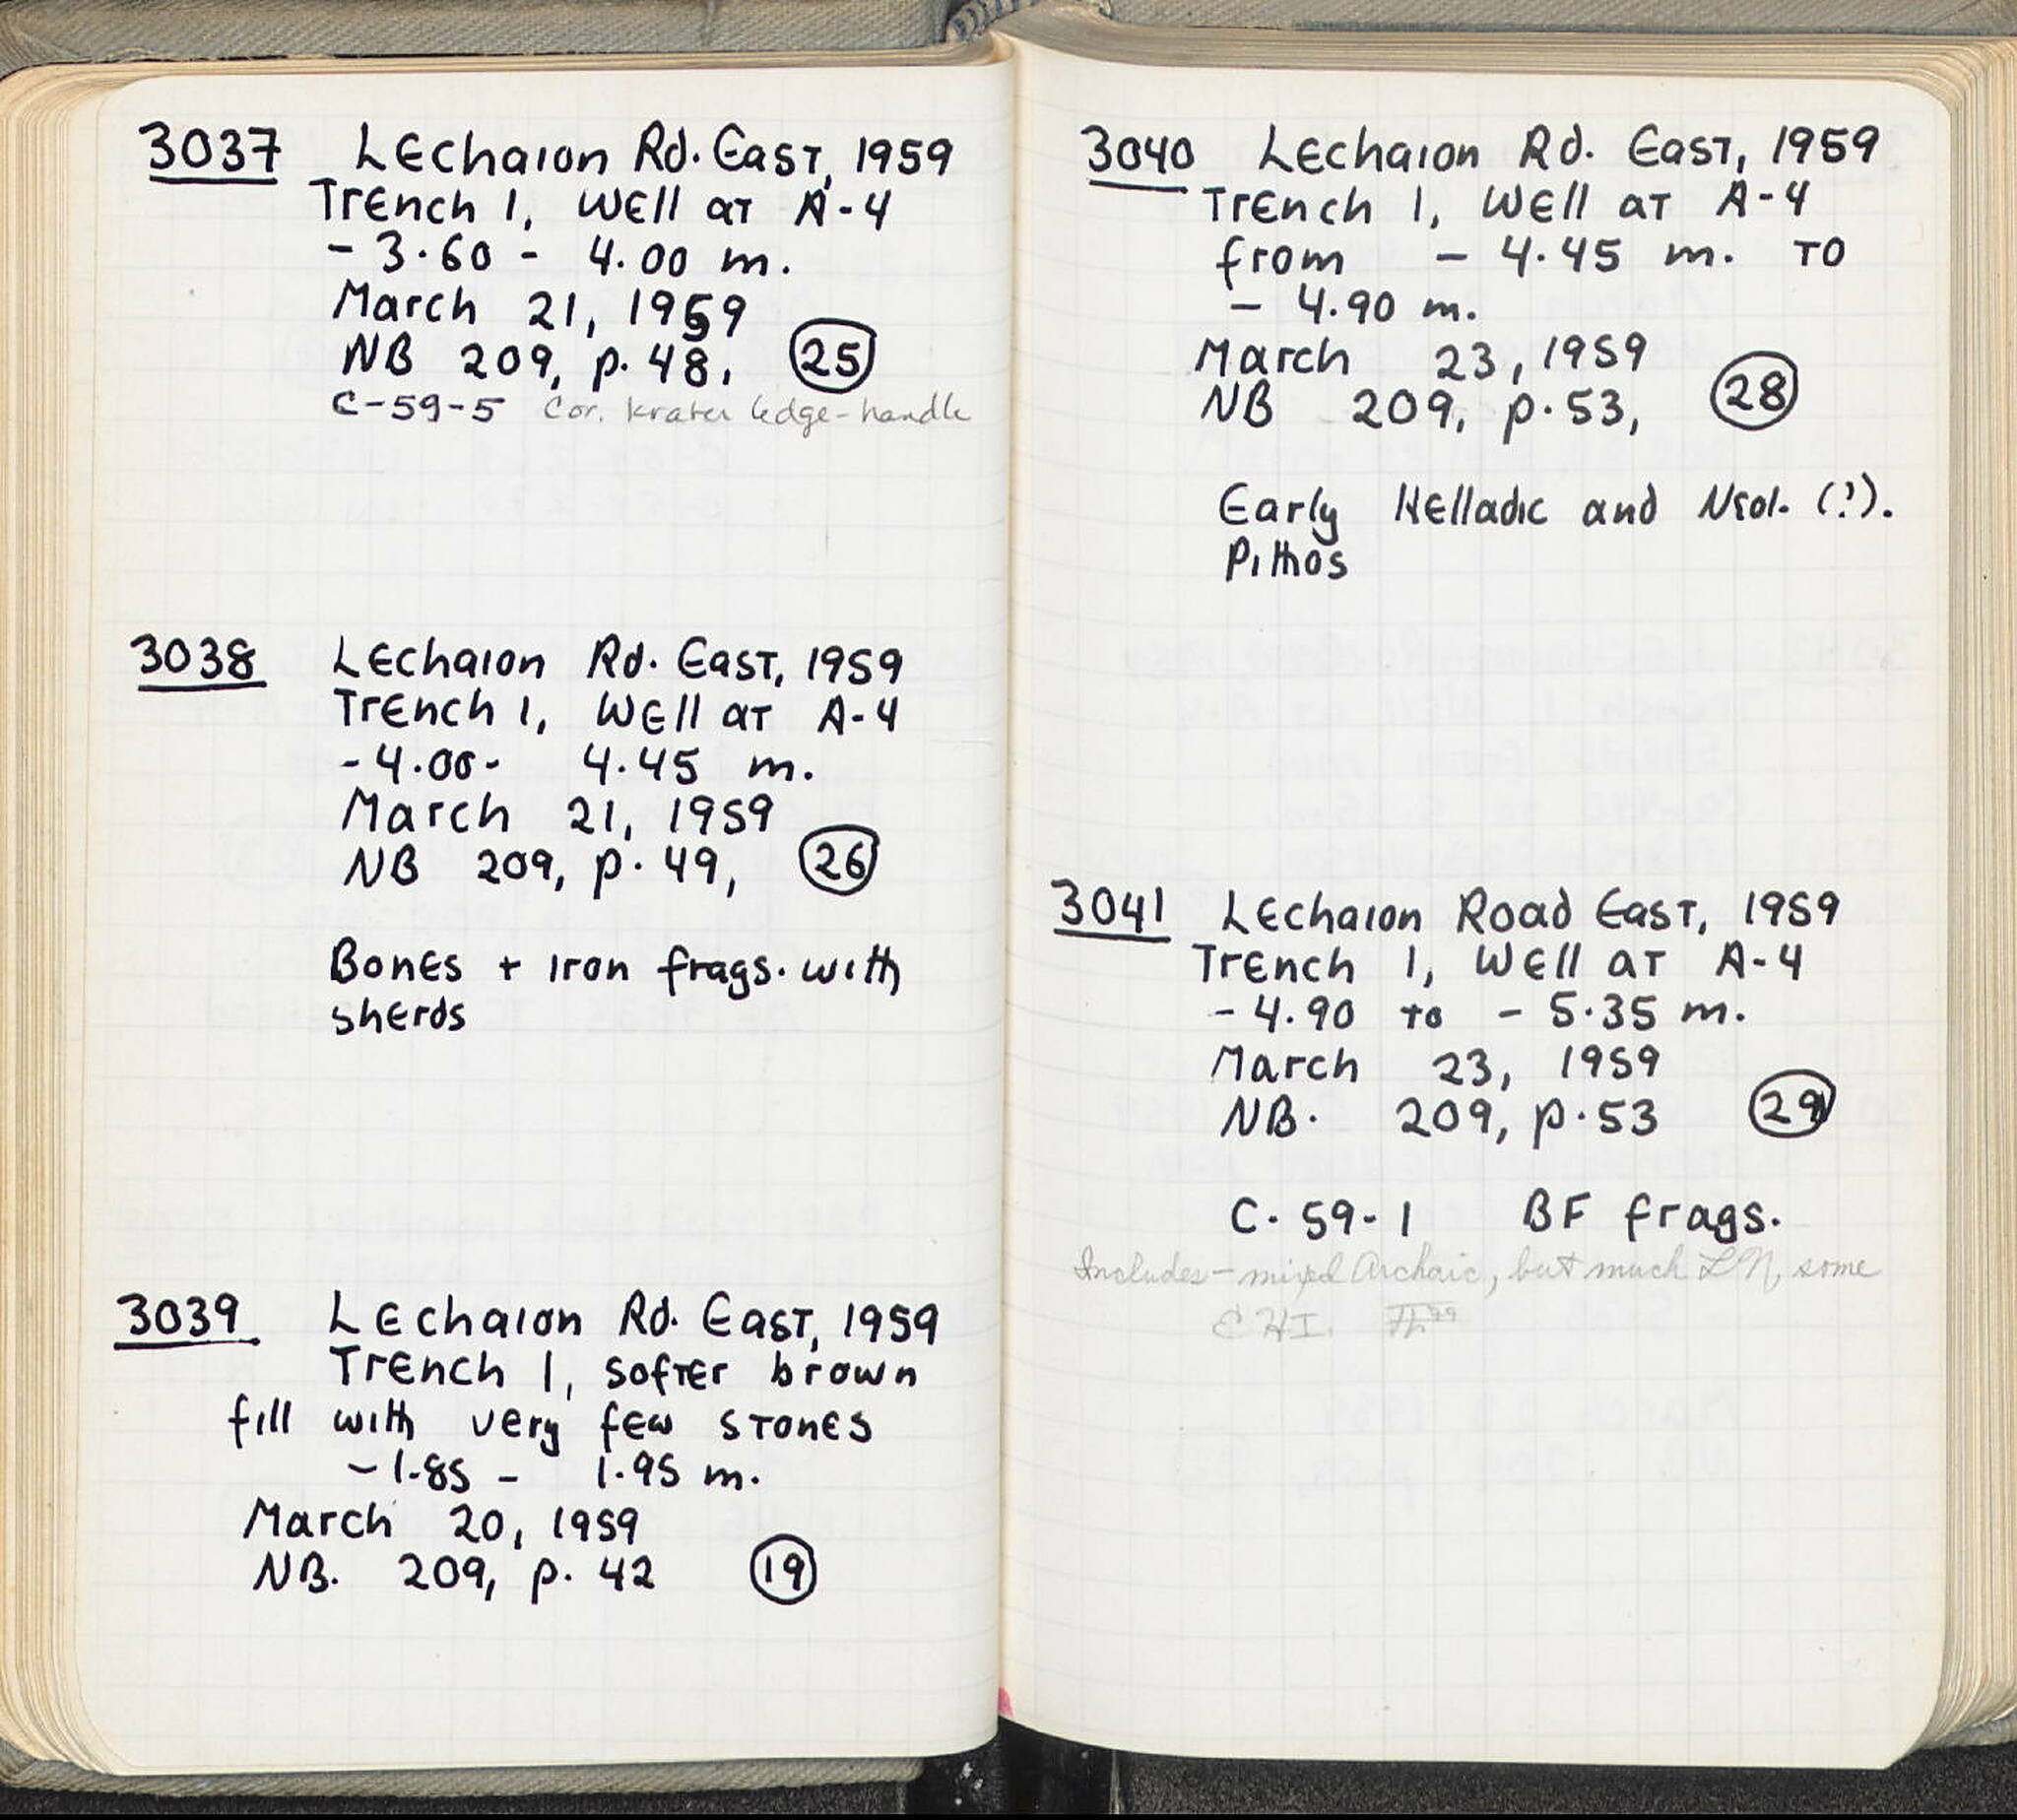 3037 Lechaion Rd. East, 1959
Trench 1, Well at A-4
- 3.60 - 4.00 m.
March 21, 1959
NB 209, p. 48, 25
C-59-5 Cor. krater ledge-handle
3038 Lechaion Rd. East, 1959
Trench 1, Well at A-4
- 4.00 - 4.45 m.
March 21, 1959
NB 209, p. 49, 26
Bones + iron frags. with
sherds
3039 Lechaion Rd. East, 1959
Trench 1, softer brown
fill with very few stones
- 1.85 - 1.95 m.
March 20, 1959
NB. 209, p. 42 19
3040 Lechaion Rd. East, 1959
Trench 1, Well at A-4
from - 4.45 m. to
- 4.90 m.
March 23, 1959
NB 209, p. 53, 28
Early Helladic and Neol. (?).
Pithos
3041 Lechaion Road East, 1959
Trench 1, Well at A-4
- 4.90 to - 5.35 m.
March 23, 1959
NB. 209, p. 53 29
C-59-1 BF frags.
Includes - mixed Archaic, but much LN, some
EHI.